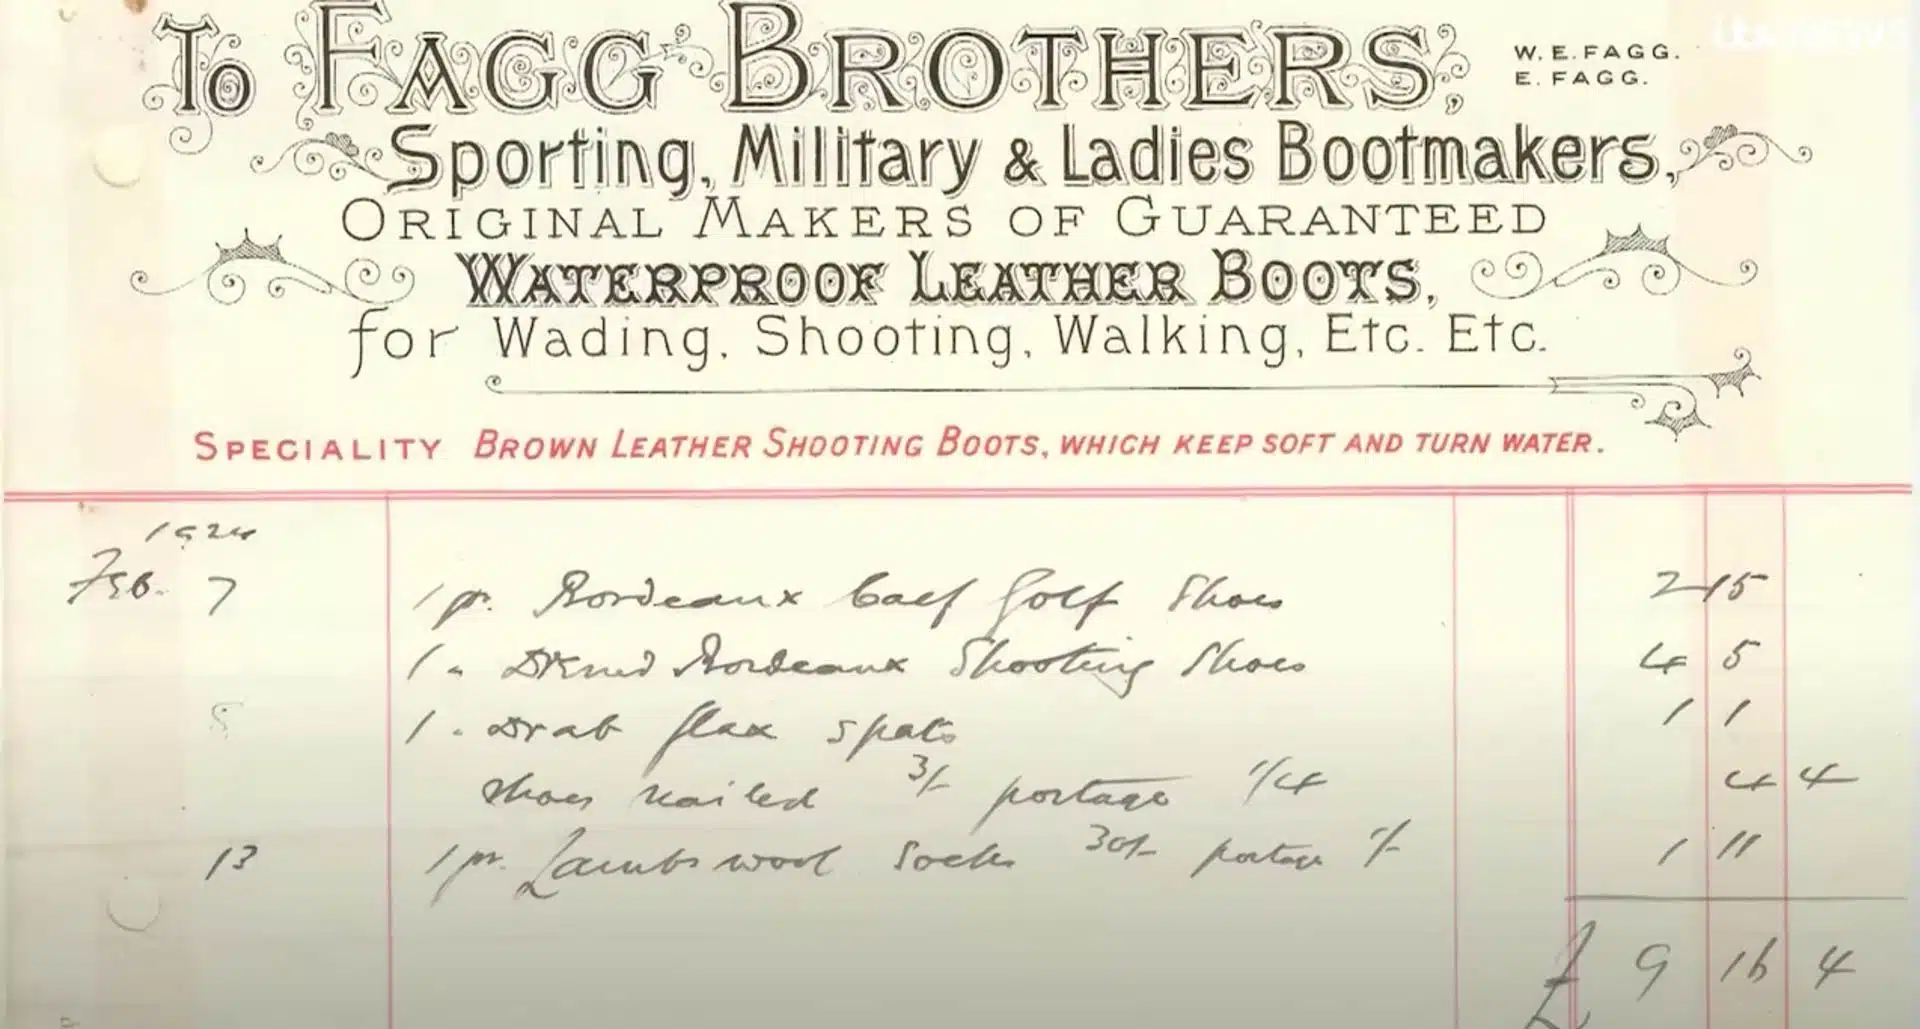 itv NEWS
To FAGG BROTHERS,
W. E. FAGG.
E. FAGG.
Sporting, Military & Ladies Bootmakers,
ORIGINAL MAKERS OF GUARANTEED
WATERPROOF LEATHER BOOTS,
for Wading, Shooting, Walking, Etc. Etc.
SPECIALITY BROWN LEATHER SHOOTING BOOTS, WHICH KEEP SOFT AND TURN WATER.
1924
Feb. 7 1 pr. Bordeaux Calf Golf Shoes 2 15
1 " Bordeaux Shooting Shoes 4 5
8 1 " Drab flax spats 1 1
shoes nailed 3/- portage 1/4 4 4
13 1 pr. Lambswool socks 30/- portage 1/- 1 11
£ 9 16 4